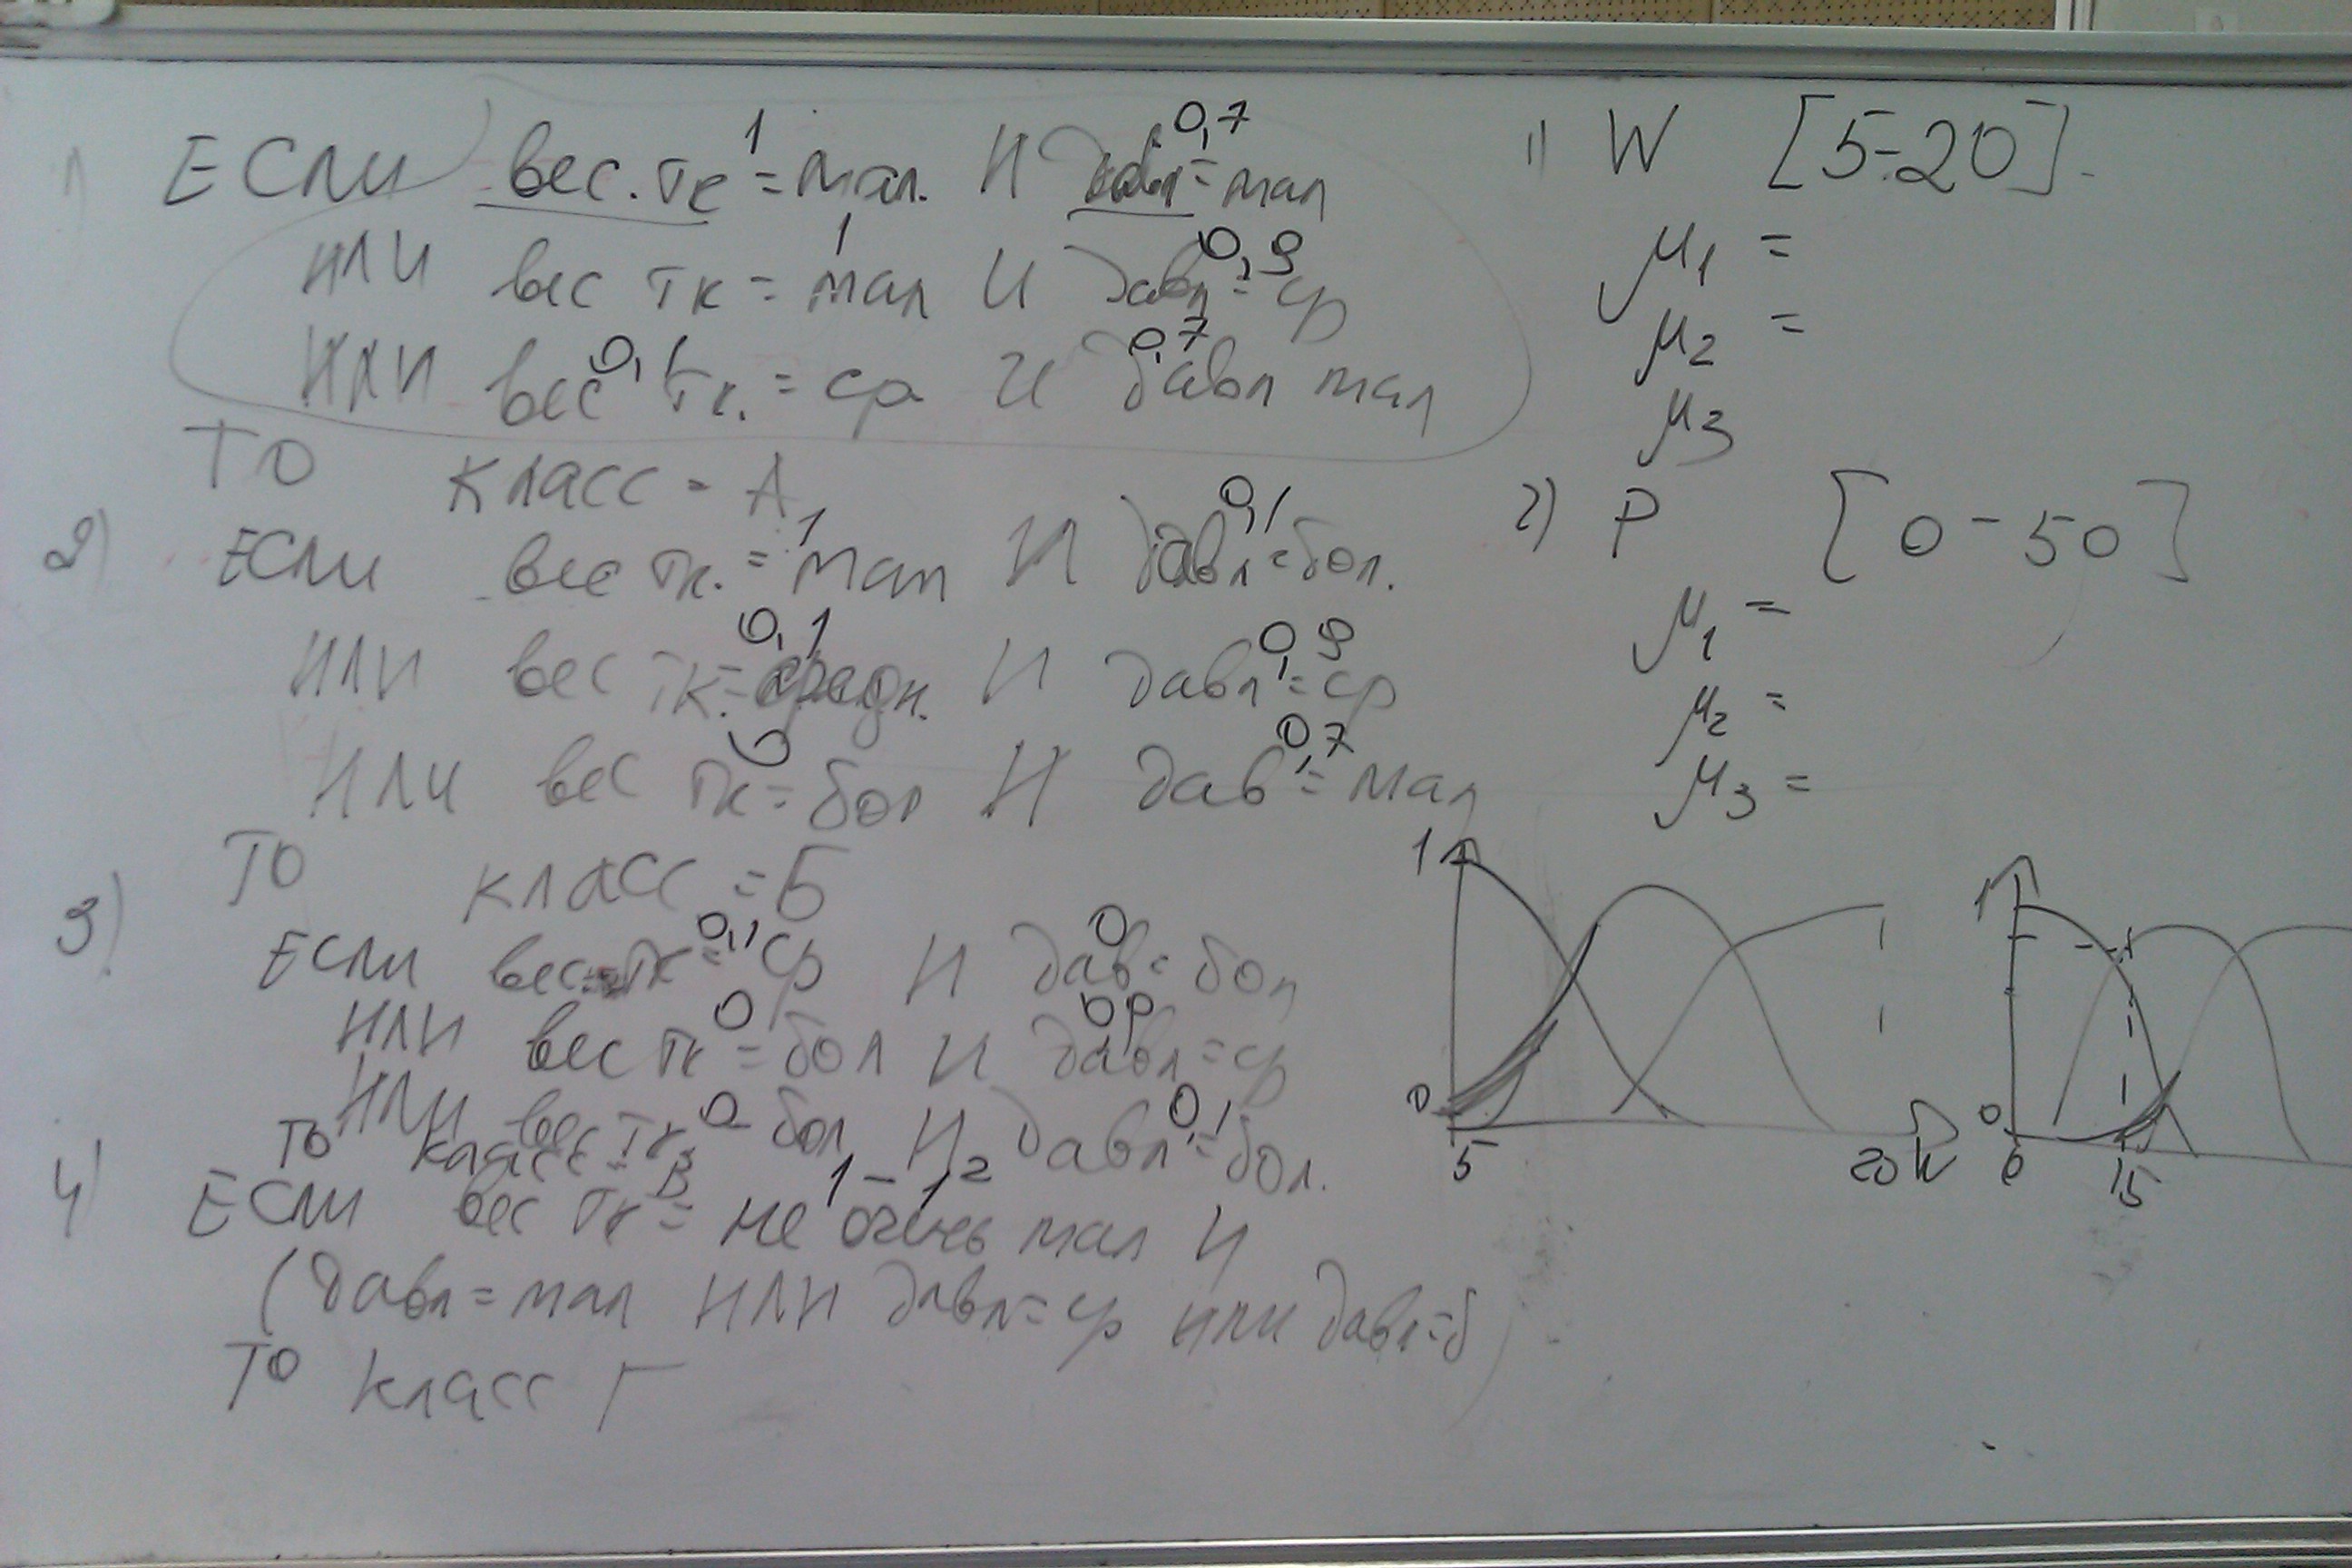 1) ЕСЛИ вес.тк = мал. И давл = мал
1 0,7
ИЛИ вес тк = мал И давл = ср
1 0,9
ИЛИ вес тк. = ср И давл мал
0,1 0,7
ТО класс = А
2) ЕСЛИ вес тк. = мал И давл = бол.
1 0,1
ИЛИ вес тк. = средн. И давл = ср
0,1 0,9
ИЛИ вес тк = бол И дав = мал
0 0,7
ТО класс = Б
3) ЕСЛИ вес тк = ср И дав = бол
0,1 0
ИЛИ вес тк = бол И давл = ср
0
ИЛИ вес тк бол И давл = бол.
0 0,1
ТО класс = В
4) ЕСЛИ вес тк = не очень мал И
1 - 1²
(давл = мал ИЛИ давл = ср или давл = б)
ТО класс Г
1) W [5-20].
μ1 =
μ2 =
μ3
2) P [0-50]
μ1 =
μ2 =
μ3 =
1
0
5 20 W
1
0
0 15